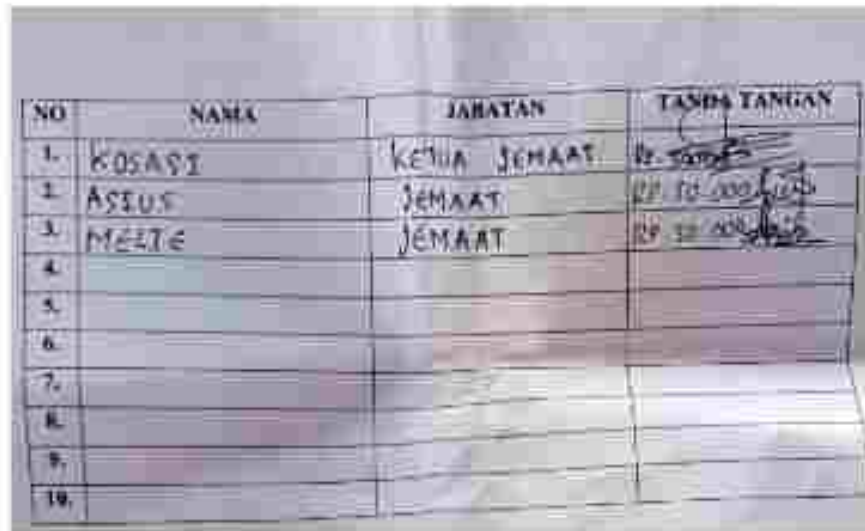 NO NAMA JABATAN TANDA TANGAN
1. KOSASI KETUA JEMAAT RP.
2. ASIUS JEMAAT RP 50.000
3. MELTE JEMAAT RP 50.000
4.
5.
6.
7.
8.
9.
10.